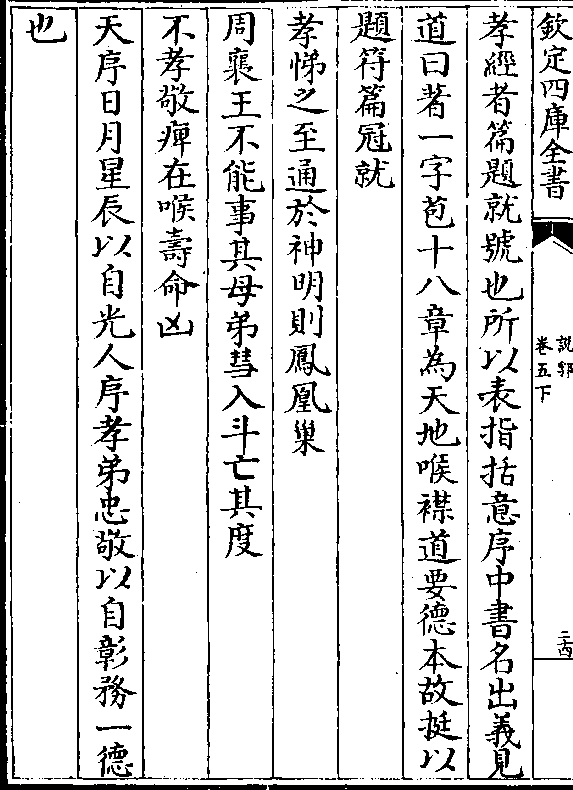 欽定四庫全書
說郛
卷五下
二十四
孝經者篇題就號也所以表指括意序中書名出義見
道曰著一字苞十八章為天地喉襟道要德本故挺以
題符篇冠就
孝悌之至通於神明則鳳凰巢
周襄王不能事其母弟彗入斗亡其度
不孝敬痺在喉壽命凶
天序日月星辰以自光人序孝弟忠敬以自彰務一德
也